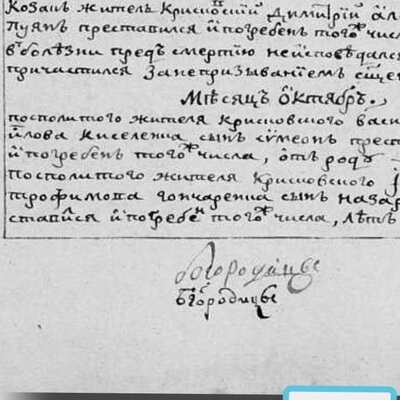 Козакъ жителъ Крисковскій Димитрій
Лукянъ преставился и погребенъ того ж числ
в болѣзни предъ смертію неисповѣдался
причастился занепризываніемъ свще
Мѣсяцъ Октябръ.
посполитого жителя Крисковского васи
илова Киселенка сынъ сумеонъ прест
и погребенъ того ж числа, отъ родъ
посполитого жителя Крисковского
трофимова гончаренка сынъ назар
ставился и погребен того ж числа, лѣтъ
богородицы
богородицы